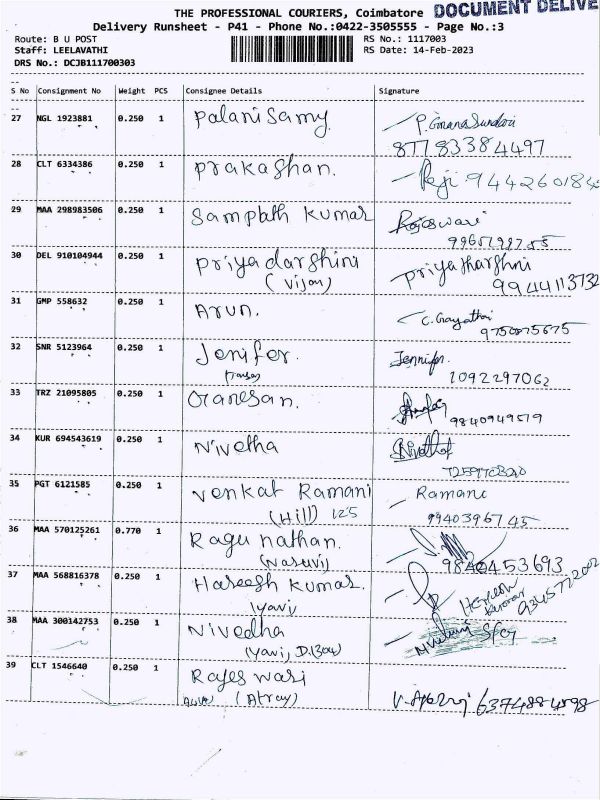 THE PROFESSIONAL COURIERS, Coimbatore DOCUMENT DELIVE
Delivery Runsheet - P41 - Phone No.:0422-3505555 - Page No.:3
Route: B U POST RS No.: 1117003
Staff: LEELAVATHI RS Date: 14-Feb-2023
DRS No.: DCJB111700303
S No Consignment No Weight PCS Consignee Details Signature
27 NGL 1923881 0.250 1 Palanisamy
87783384497
28 CLT 6334386 0.250 1 Prakashan.
29 MAA 298983506 0.250 1 Sampath Kumar
30 DEL 910104944 0.250 1 Priyadarshini Priyatharshni
(Vijay) 9944113732
31 GMP 558632 0.250 1 Arun. C. Gayathri
9750875675
32 SNR 5123964 0.250 1 Jenifer. Jennifer.
7092297062
33 TRZ 21095805 0.250 1 Ganesan.
9840949519
34 KUR 694543619 0.250 1 Nivetha
35 PGT 6121585 0.250 1 Venkat Ramani Ramani
(Hill) 125 9940396745
36 MAA 570125261 0.770 1 Ragunathan.
9840453693
37 MAA 568816378 0.250 1 Hareesh Kumar.
38 MAA 300142753 0.250 1 Nivedha
39 CLT 1546640 0.250 1 Rajeswari
6374884898